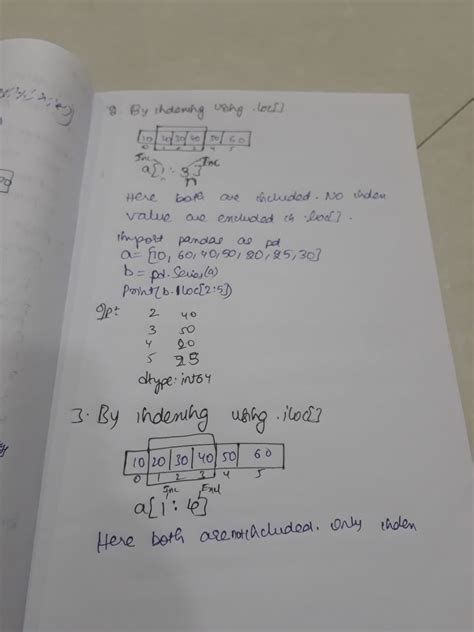 2. By indexing using .loc[]
10 20 30 40 50 60
0 1 2 3 4 5
Inc Inc
a[1 : 3]
n
Here both are included. No index
value are excluded in .loc[].
import pandas as pd
a = [10, 60, 40, 50, 20, 25, 30]
b = pd.Series(a)
Print(b.loc[2:5])
O/p:
2 40
3 50
4 20
5 25
dtype: int64
3. By indexing using .iloc[]
10 20 30 40 50 60
0 1 2 3 4 5
Inc Excl
a[1 : 4]
Here both are not included. only index